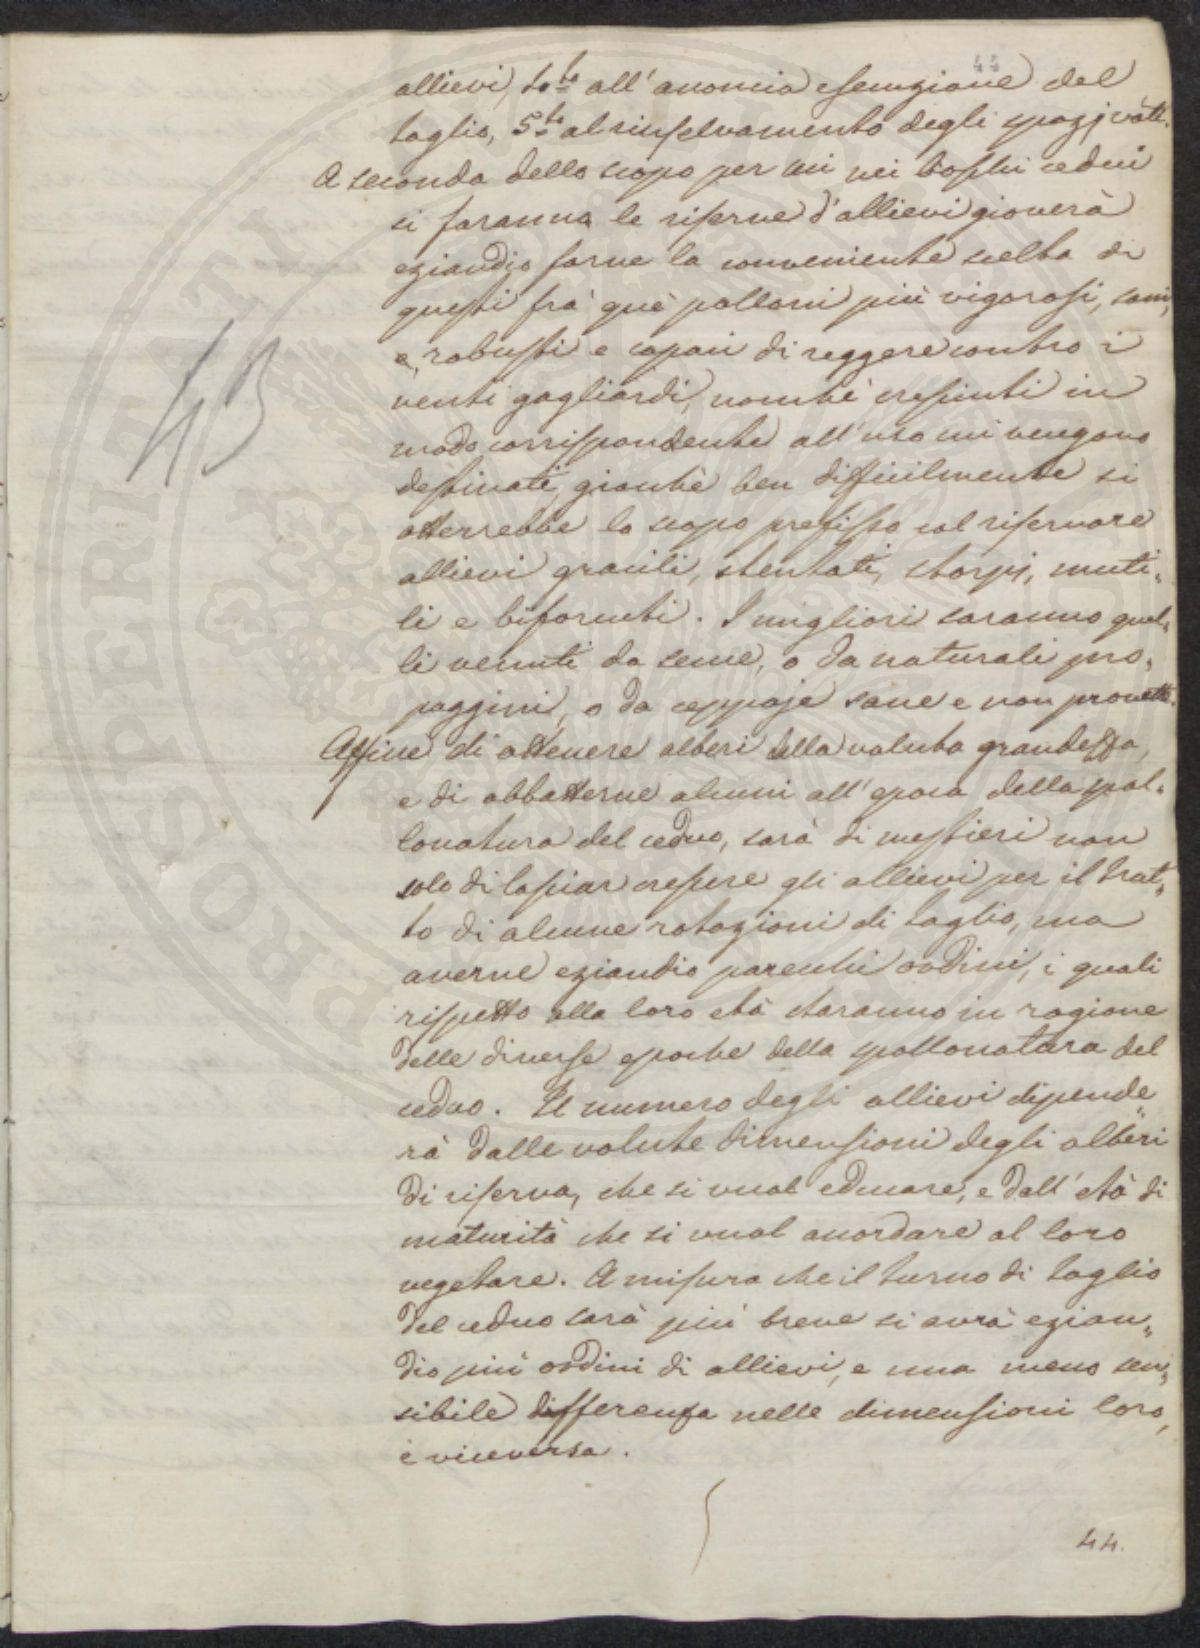 44
allievi, 4.to all'anoncia esenzione del
taglio, 5.to al rinselvamento degli spazj vôti.
A seconda dello scopo per cui nei boschi cedui
si faranno le riserve d'allievi gioverà
eziandio farne la conveniente scelta di
questi frà què polloni più vigorosi, sani,
e robusti e capaci di reggere contro i
venti gagliardi, nonchè cresciuti in
modo corrispondente all'uso cui vengono
destinati, giacchè ben difficilmente si
otterrebbe lo scopo prefisso col riservare
allievi gracili, stentati, storpj, muti„
li e biforcuti. I migliori saranno quel„
li venuti da seme, o da naturali pro„
paggini, o da ceppaje sane e non provette.
Affine di ottenere alberi della voluta grandezza,
e di abbatterne alcuni all'epoca della spol„
lonatura del ceduo, sarà di mestieri non
solo di lasciar crescere gli allievi per il trat„
to di alcune rotazioni di taglio, ma
averne eziandio parecchi ordini, i quali
rispetto alla loro età staranno in ragione
delle diverse epoche della spollonatura del
ceduo. Il numero degli allievi dipende„
rà dalle volute dimensioni degli alberi
di riserva, che si vuol educare, e dall'età di
maturità che si vuol accordare al loro
vegetare. A misura che il turno di taglio
del ceduo sarà più breve si avrà ezian„
dio più ordini di allievi, e una meno sen„
sibile differenza nelle dimensioni loro,
e viceversa.
43
44.
PROSPERITATI